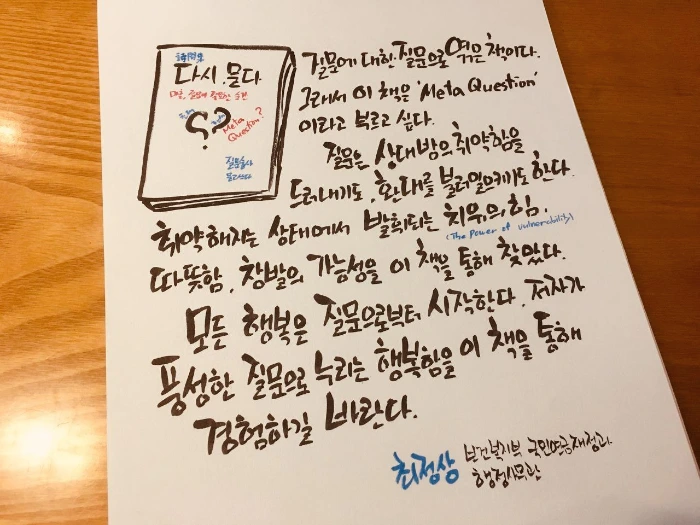 다시, 묻다
Meta
Question?
질문에 대한 질문으로 엮은 책이다.
그래서 이 책은 'Meta Question'
이라고 부르고 싶다.
질문은 상대방의 취약함을
드러내기도, 환대를 불러일으키기도 한다.
취약해지는 상태에서 발휘되는 치유의 힘,
(The power of vulnerability)
따뜻함, 창발의 가능성을 이 책을 통해 찾았다.
모든 행복은 질문으로부터 시작한다. 저자가
풍성한 질문으로 누리는 행복함을 이 책을 통해
경험하길 바란다.
최정상 보건복지부 국민연금재정과
행정사무관